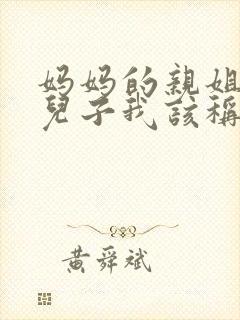 妈妈的親姐
兒子我该稱
黄舜斌